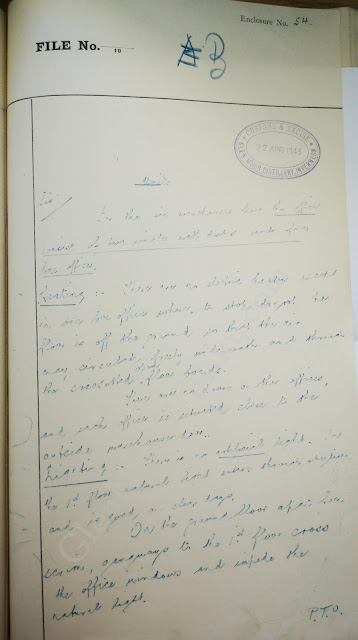 Enclosure No. 54.
FILE No. 10
B
CUSTOMS & EXCISE
22 APR 1945
GLEN MOHR DISTILLERY INVERNESS
Sir/
In the six warehouses here the office
consist of two single wall desks made from
Heating :- There are no electric heaters except
in one office where, to stop damp the
floor is off the ground so that the air
may circulate freely underneath and through
the floor boards.
There are no doors on the offices,
and each office is situated close to the
outside warehouse door.
Lighting :- There is no artificial light. In
the 1st floor natural light enters through skylights
and is good on clear days.
On the ground floor
gangways to the 1st floor cross
the office windows and impede the
natural light.
P.T.O.